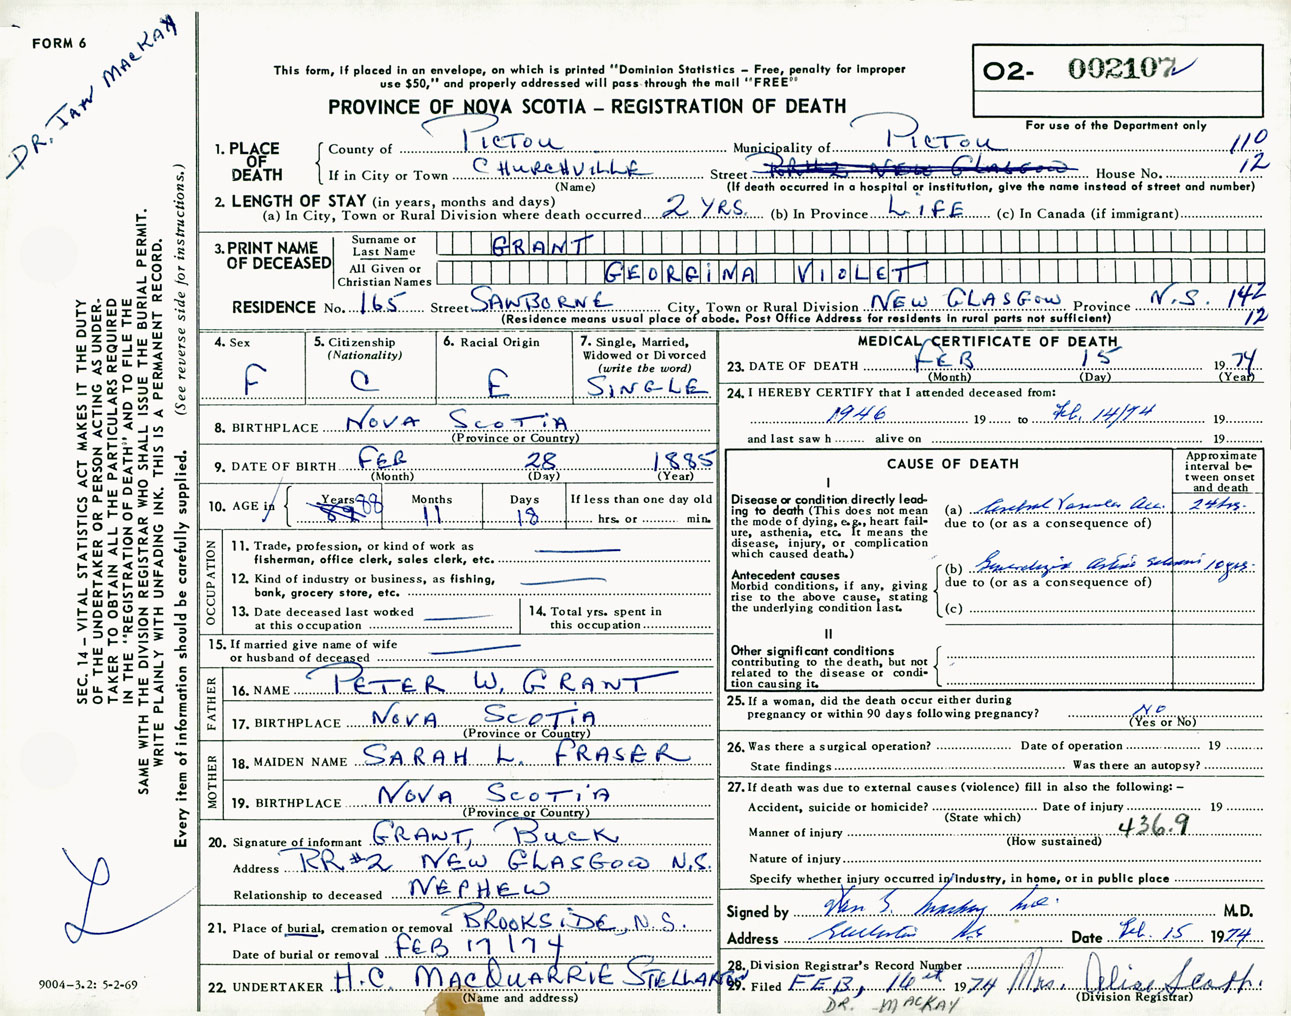 FORM 6
DR. IAN MACKAY
This form, if placed in an envelope, on which is printed "Dominion Statistics – Free, penalty for improper
use $50," and properly addressed will pass through the mail "FREE"
PROVINCE OF NOVA SCOTIA – REGISTRATION OF DEATH
O2- 002107
For use of the Department only
1. PLACE OF DEATH
County of PICTOU Municipality of PICTOU 110
If in City or Town CHURCHVILLE Street RR#2 NEW GLASGOW House No. 12
(Name) (If death occurred in a hospital or institution, give the name instead of street and number)
2. LENGTH OF STAY (in years, months and days)
(a) In City, Town or Rural Division where death occurred 2 YRS. (b) In Province LIFE (c) In Canada (if immigrant)
3. PRINT NAME OF DECEASED
Surname or Last Name GRANT
All Given or Christian Names GEORGINA VIOLET
RESIDENCE No. 165 Street SANBORNE City, Town or Rural Division NEW GLASGOW Province N.S. 142
(Residence means usual place of abode. Post Office Address for residents in rural parts not sufficient) 12
4. Sex
F
5. Citizenship
(Nationality)
C
6. Racial Origin
E
7. Single, Married,
Widowed or Divorced
(write the word)
SINGLE
8. BIRTHPLACE NOVA SCOTIA
(Province or Country)
9. DATE OF BIRTH FEB 28 1885
(Month) (Day) (Year)
10. AGE in
Years 89 88
Months 11
Days 18
If less than one day old
hrs. or min.
OCCUPATION
11. Trade, profession, or kind of work as
fisherman, office clerk, sales clerk, etc.
12. Kind of industry or business, as fishing,
bank, grocery store, etc.
13. Date deceased last worked
at this occupation
14. Total yrs. spent in
this occupation
15. If married give name of wife
or husband of deceased
FATHER
16. NAME PETER W. GRANT
17. BIRTHPLACE NOVA SCOTIA
(Province or Country)
MOTHER
18. MAIDEN NAME SARAH L. FRASER
19. BIRTHPLACE NOVA SCOTIA
(Province or Country)
20. Signature of informant GRANT, BUCK
Address RR#2 NEW GLASGOW N.S.
Relationship to deceased NEPHEW
21. Place of burial, cremation or removal BROOKSIDE, N.S.
Date of burial or removal FEB 17/74
22. UNDERTAKER H.C. MACQUARRIE STELLARTON
(Name and address)
MEDICAL CERTIFICATE OF DEATH
23. DATE OF DEATH FEB 15 1974
(Month) (Day) (Year)
24. I HEREBY CERTIFY that I attended deceased from:
1946 19 to Feb. 14/74 19
and last saw h alive on 19
CAUSE OF DEATH
Approximate
interval be-
tween onset
and death
I
Disease or condition directly lead-
ing to death (This does not mean
the mode of dying, e.g., heart fail-
ure, asthenia, etc. It means the
disease, injury, or complication
which caused death.)
(a) Cerebral Vascular Acc. 24 hrs.
due to (or as a consequence of)
Antecedent causes
Morbid conditions, if any, giving
rise to the above cause, stating
the underlying condition last.
(b) Generalized 10 yrs.
due to (or as a consequence of)
(c)
II
Other significant conditions
contributing to the death, but not
related to the disease or condi-
tion causing it.
25. If a woman, did the death occur either during
pregnancy or within 90 days following pregnancy? NO
(Yes or No)
26. Was there a surgical operation? Date of operation 19
State findings Was there an autopsy?
27. If death was due to external causes (violence) fill in also the following: –
Accident, suicide or homicide? Date of injury 19
(State which)
Manner of injury 436.9
(How sustained)
Nature of injury
Specify whether injury occurred in industry, in home, or in public place
Signed by Ian S. Mackay M.D.
Address Stellarton N.S. Date Feb. 15 1974
28. Division Registrar's Record Number
29. Filed FEB, 16th 1974 Mrs. Scott
(Division Registrar)
DR. MACKAY
SEC. 14–VITAL STATISTICS ACT MAKES IT THE DUTY
OF THE UNDERTAKER OR PERSON ACTING AS UNDER-
TAKER TO OBTAIN ALL THE PARTICULARS REQUIRED
IN THE "REGISTRATION OF DEATH" AND TO FILE THE
SAME WITH THE DIVISION REGISTRAR WHO SHALL ISSUE THE BURIAL PERMIT.
WRITE PLAINLY WITH UNFADING INK. THIS IS A PERMANENT RECORD.
Every item of information should be carefully supplied. (See reverse side for instructions.)
L
9004–3.2: 5-2-69